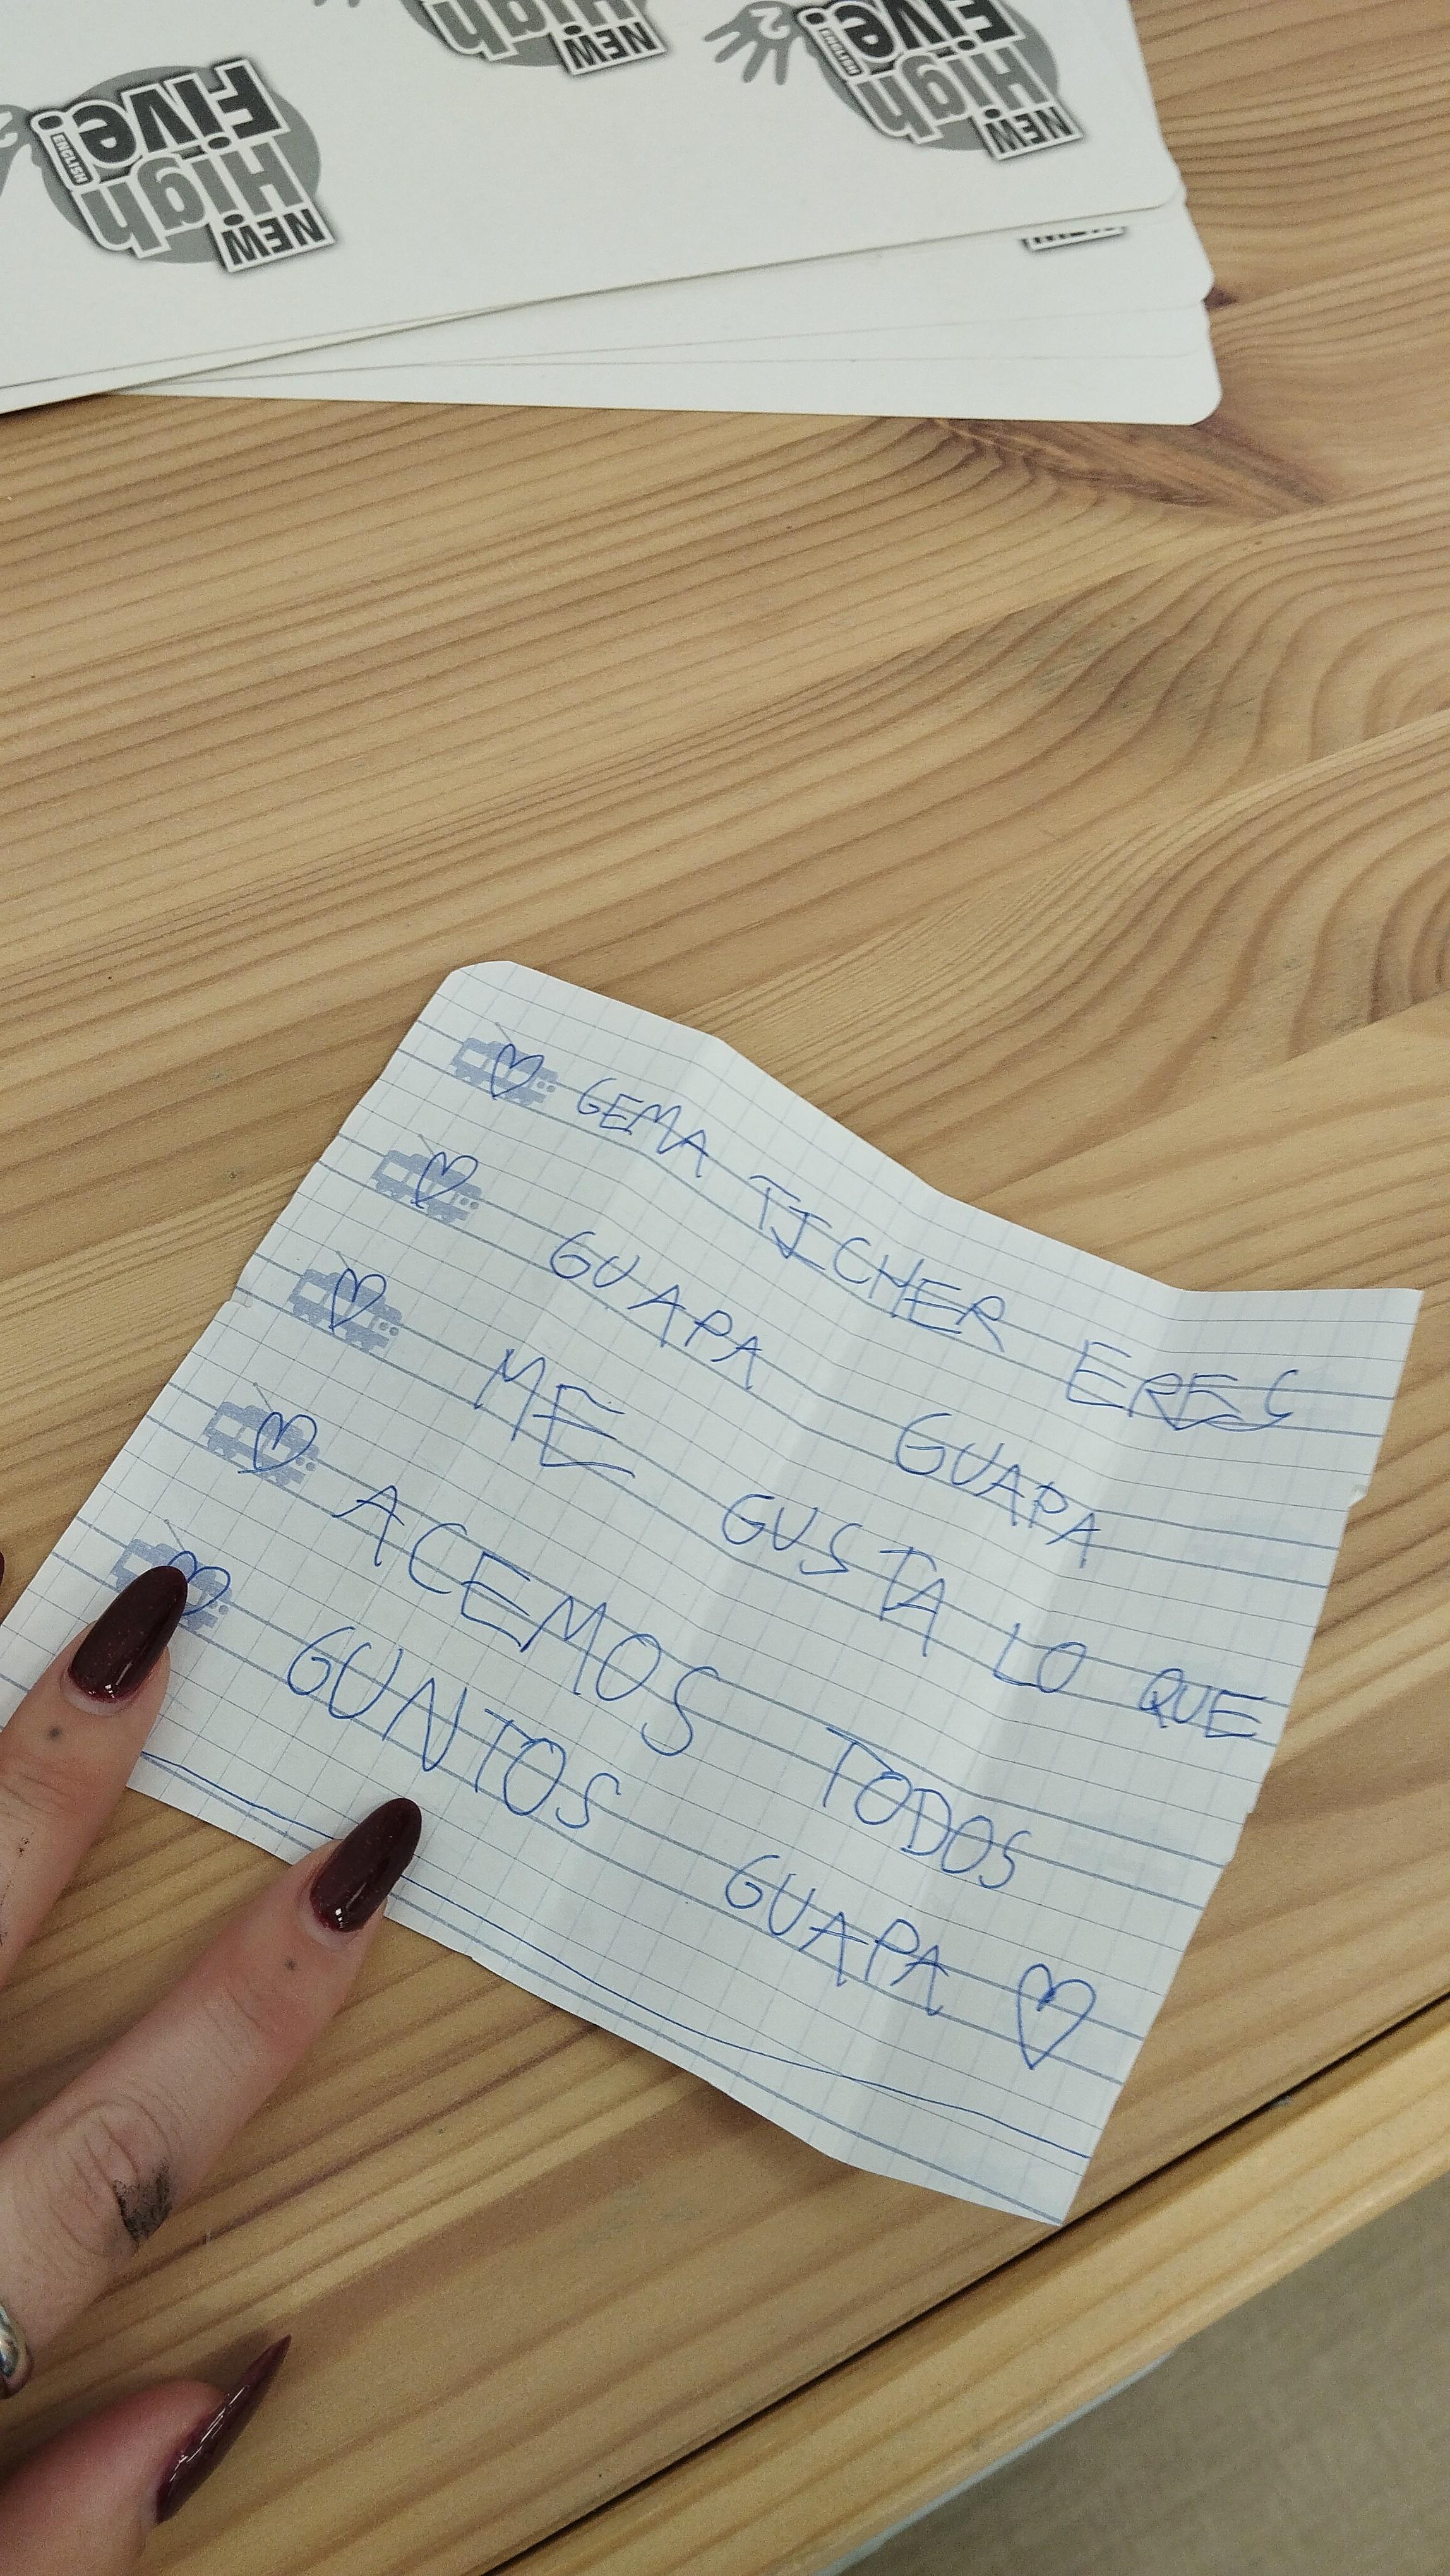 NEW
High
Five!
ENGLISH
NEW
High
NEW
High
Five!
ENGLISH
2
GEMA TICHER ERES
GUAPA GUAPA
ME GUSTA LO QUE
ACEMOS TODOS
GUNTOS GUAPA